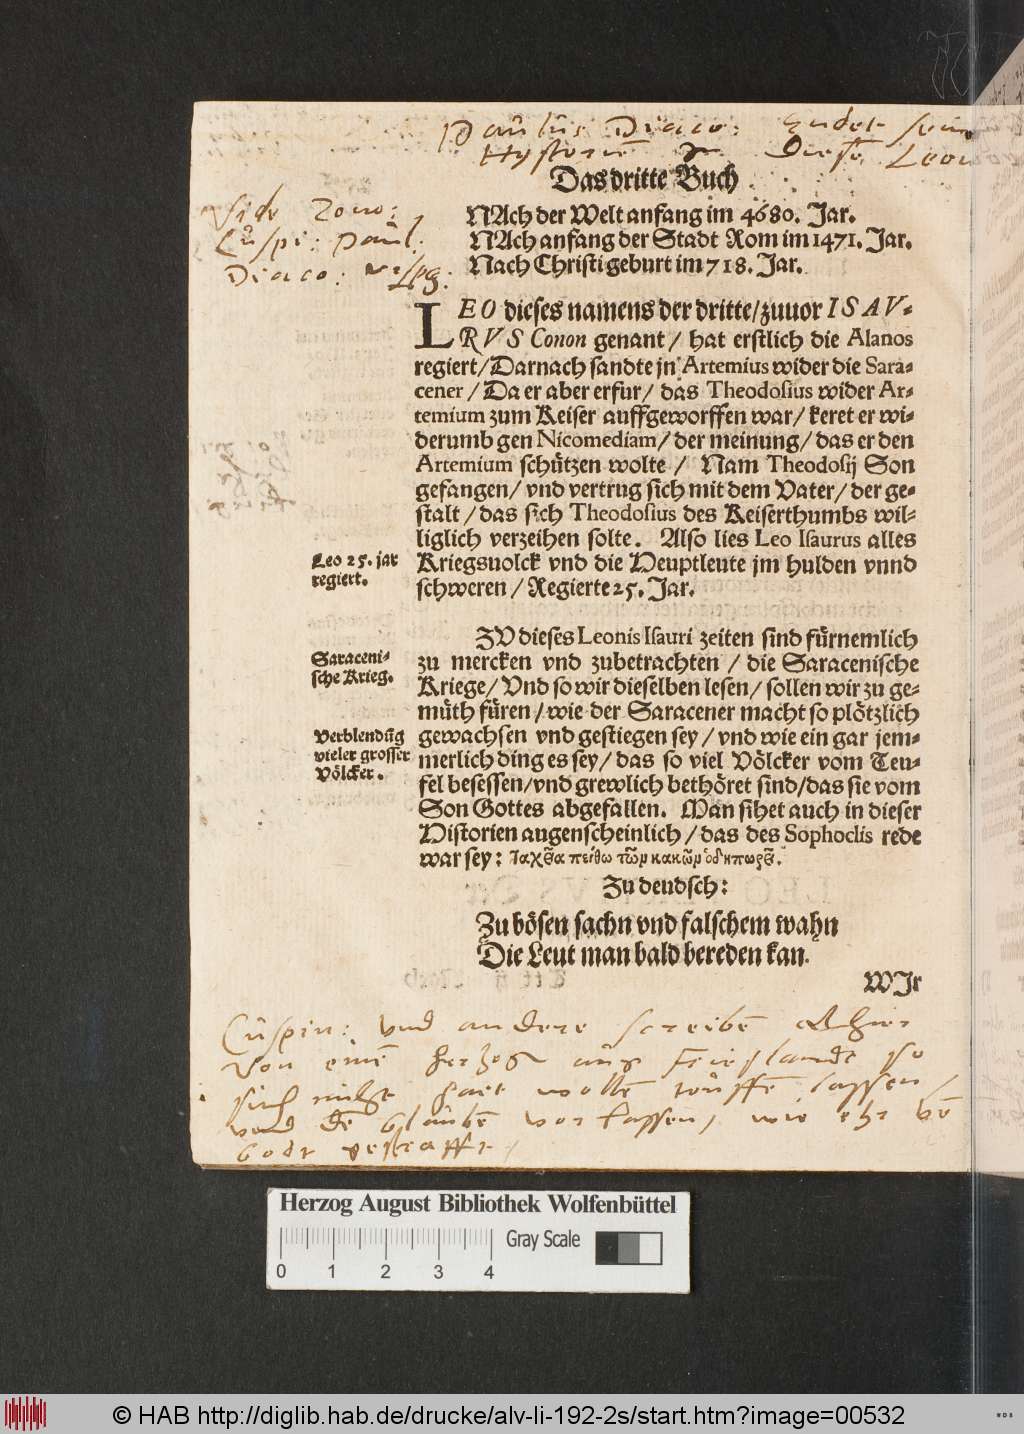 Paulus Diaco: Endet sein
Hystorie In Diese Leon
Das dritte Buch
Vide Zono:
Cuspi: Paul.
Diaco:
NAch der Welt anfang im 4680. Jar.
NAch anfang der Stadt Rom im 1471. Jar.
Nach Christi geburt im 718. Jar.
LEO dieses namens der dritte/zuuor ISAV-
RVS Conon genant / hat erstlich die Alanos
regiert/Darnach sandte jn Artemius wider die Sara-
cener / Da er aber erfur/ das Theodosius wider Ar-
temium zum Keiser auffgeworffen war/ keret er wi-
derumb gen Nicomediam/ der meinung/ das er den
Artemium schützen wolte / Nam Theodosij Son
gefangen/ vnd vertrug sich mit dem Vater/ der ge-
stalt / das sich Theodosius des Keiserthumbs wil-
liglich verzeihen solte. Also lies Leo Isaurus alles
Leo 25. jar
regiert.
Kriegsuolck vnd die Heuptleute jm hulden vnnd
schweren / Regierte 25. Jar.
ZV dieses Leonis Isauri zeiten sind fürnemlich
Saraceni-
sche Krieg.
zu mercken vnd zubetrachten / die Saracenische
Kriege/ Vnd so wir dieselben lesen/ sollen wir zu ge-
müth füren / wie der Saracener macht so plötzlich
Verblendūg
vieler grosser
Völcker.
gewachsen vnd gestiegen sey / vnd wie ein gar jem-
merlich ding es sey/ das so viel Völcker vom Teu-
fel besessen/vnd grewlich bethöret sind/das sie vom
Son Gottes abgefallen. Man sihet auch in dieser
Historien augenscheinlich / das des Sophoclis rede
war sey: πείθω τῶν κακῶν
Zu deudsch:
Zu bösen sachn vnd falschem wahn
Die Leut man bald bereden kan.
WJr
Cuspin: vnd andere screibē Alhier
Von einē herzog aus Frieslandt so
sich nicht hatt wollē teuffē lassen,
vnd dē glaubē vorlassen, wie ehr vō
Godt gestrafft,
Herzog August Bibliothek Wolfenbüttel
Gray Scale
0 1 2 3 4
© HAB http://diglib.hab.de/drucke/alv-li-192-2s/start.htm?image=00532